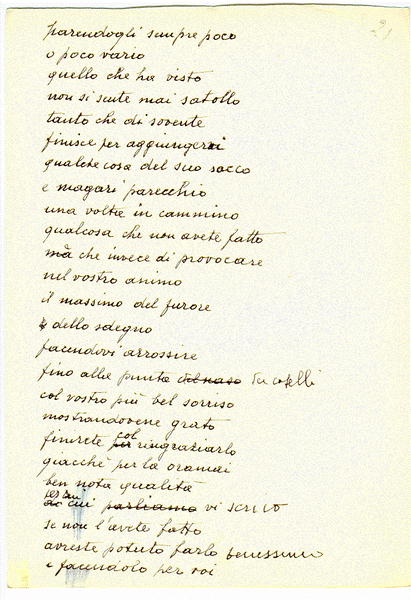 21
parendogli sempre poco
o poco vario
quello che ha visto
non si sente mai satollo
tanto che di sovente
finisce per aggiungervi
qualche cosa del suo sacco
e magari parecchio
una volta in cammino
qualcosa che non avete fatto
ma che invece di provocare
nel vostro animo
il massimo del furore
e dello sdegno
facendovi arrossire
fino alla punta del naso dei capelli
col vostro più bel sorriso
mostrandovene grato
finirete per col ringraziarlo
giacché per la oramai
ben nota qualità
di cui parliamo vi scrivo
se non l'avete fatto
avreste potuto farlo benissimo
e facendolo per voi